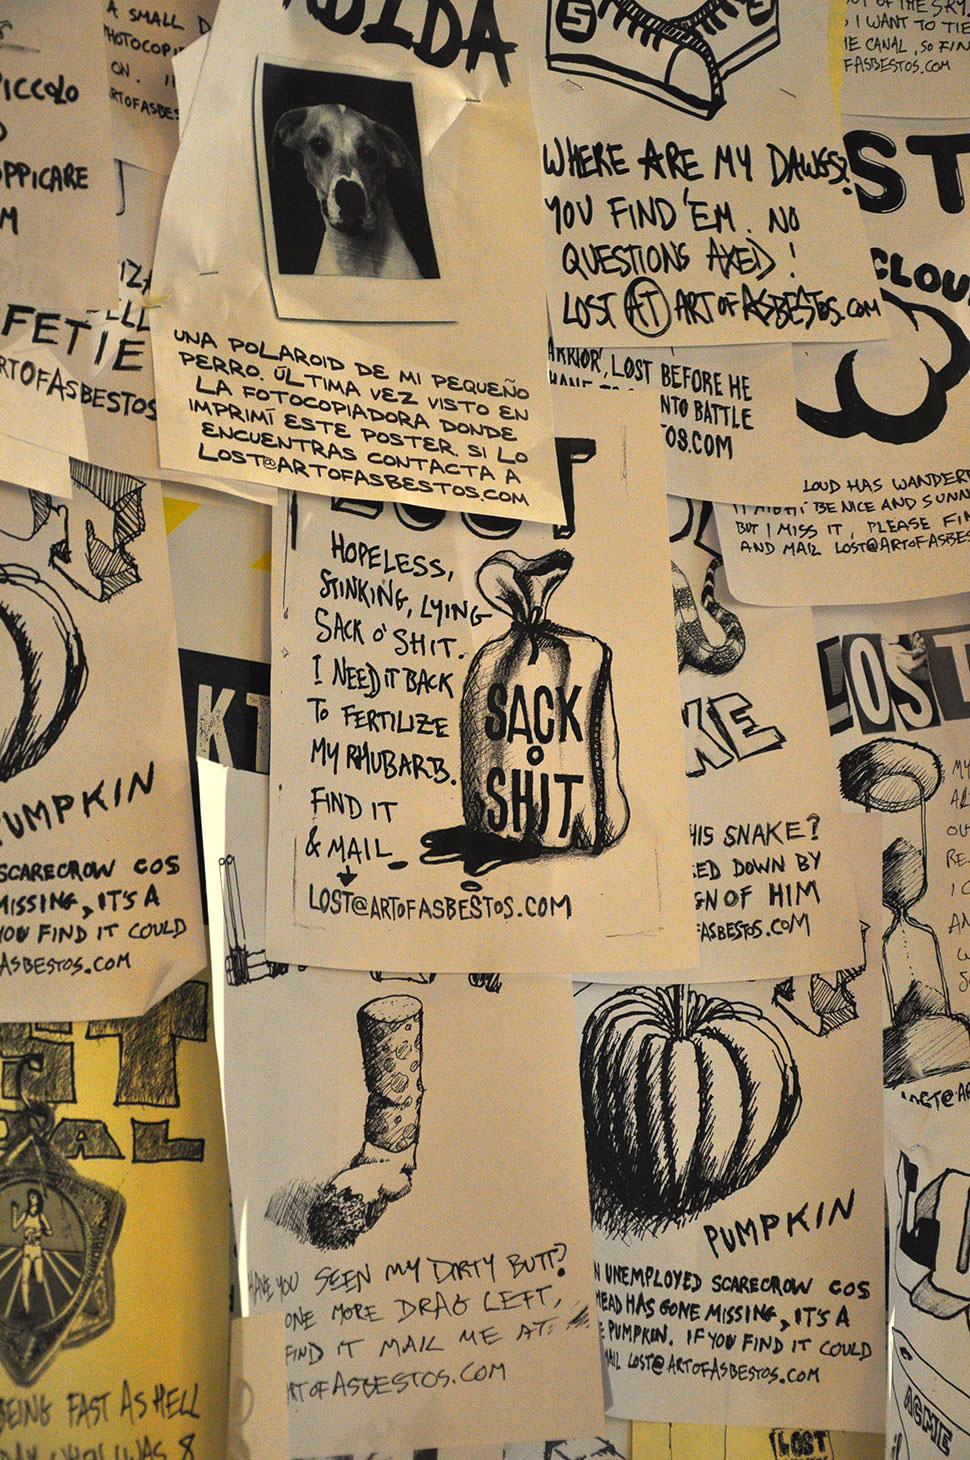 A SMALL
PHOTOCOPI
ON.
ICCOLO
OPPICARE
FETIE
RTOFASBESTOS
UNA POLAROID DE MI PEQUEÑO
PERRO. ÚLTIMA VEZ VISTO EN
LA FOTOCOPIADORA DONDE
IMPRIMÍ ESTE POSTER. SI LO
ENCUENTRAS CONTACTA A
LOST@ARTOFASBESTOS.COM
5
5
WHERE ARE MY DAWGS?
YOU FIND 'EM. NO
QUESTIONS AXED!
LOST AT ARTOFASBESTOS.COM
OF THE SKY.
I WANT TO TIE
HE CANAL, SO FIN
FASBESTOS.COM
ST
CLOU
LOUD HAS WANDER
IT MIGHT BE NICE AND SUNN
BUT I MISS IT, PLEASE FIN
AND MAIL LOST@ARTOFASBES
ARRIOR, LOST BEFORE HE
NTO BATTLE
OS.COM
LOST
HOPELESS,
STINKING, LYING
SACK O' SHIT.
I NEED IT BACK
TO FERTILIZE
MY RHUBARB.
FIND IT
& MAIL
LOST@ARTOFASBESTOS.COM
SACK
O
SHIT
PUMPKIN
SCARECROW COS
MISSING, IT'S A
YOU FIND IT COULD
ASBESTOS.COM
KE
HIS SNAKE?
ED DOWN BY
GN OF HIM
FASBESTOS.COM
LOST
MY
OU
RE
I C
AN
LOST@AR
HAVE YOU SEEN MY DIRTY BUTT?
ONE MORE DRAG LEFT,
FIND IT MAIL ME AT:
RTOFASBESTOS.COM
PUMPKIN
N UNEMPLOYED SCARECROW COS
HEAD HAS GONE MISSING, IT'S A
E PUMPKIN. IF YOU FIND IT COULD
AIL LOST@ARTOFASBESTOS.COM
ST
AL
BEING FAST AS HELL
DAY WHEN I WAS 8
ACME
LOST